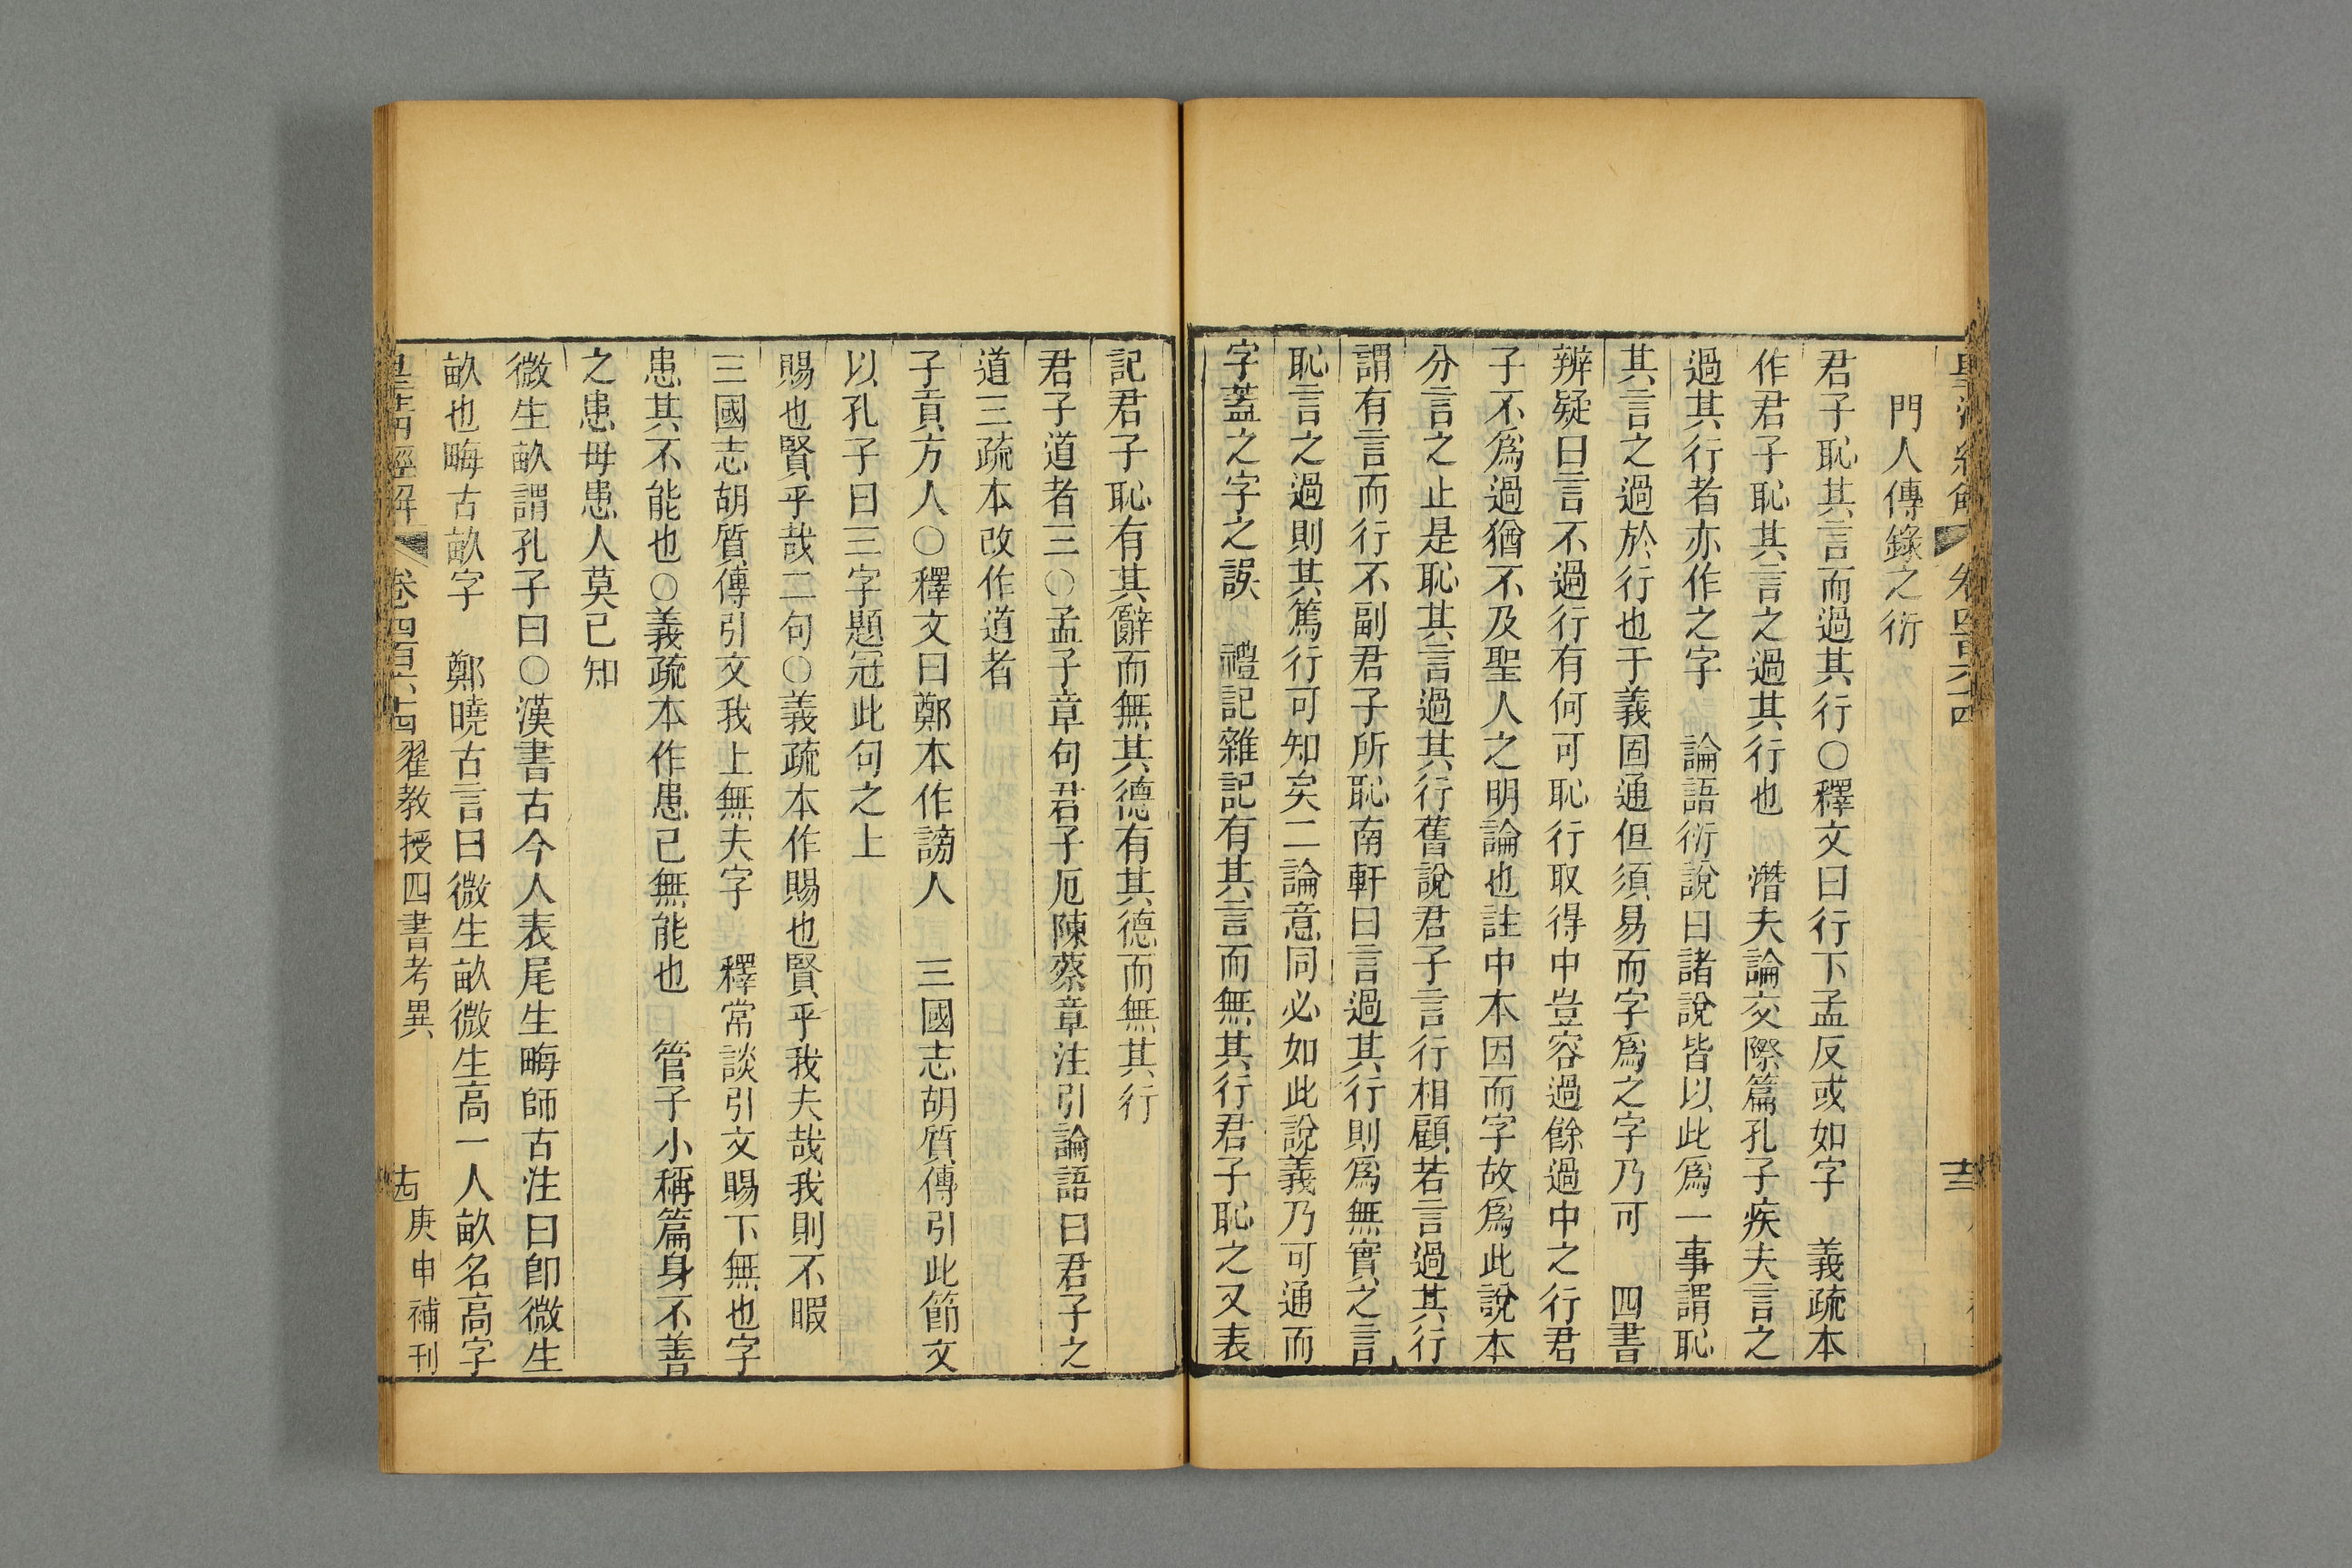 門人傳錄之衍
君子恥其言而過其行○釋文曰行下孟反或如字　義疏本
作君子恥其言之過其行也　潛夫論交際篇孔子疾夫言之
過其行者亦作之字　論語衍說曰諸說皆以此爲一事謂恥
其言之過於行也于義固通但須易而字爲之字乃可　四書
辨疑曰言不過行有何可恥行取得中豈容過餘過中之行君
子不爲過猶不及聖人之明論也註中本因而字故爲此說本
分言之止是恥其言過其行舊說君子言行相顧若言過其行
謂有言而行不副君子所恥南軒曰言過其行則爲無實之言
恥言之過則其篤行可知矣二論意同必如此說義乃可通而
字蓋之字之誤　禮記雜記有其言而無其行君子恥之又表
記君子恥有其辭而無其德有其德而無其行
君子道者三○孟子章句君子厄陳蔡章注引論語曰君子之
道三疏本改作道者
子貢方人○釋文曰鄭本作謗人　三國志胡質傳引此節文
以孔子曰三字題冠此句之上
賜也賢乎哉二句○義疏本作賜也賢乎我夫哉我則不暇
三國志胡質傳引文我上無夫字　釋常談引文賜下無也字
患其不能也○義疏本作患己無能也　管子小稱篇身不善
之患毋患人莫己知
微生畝謂孔子曰○漢書古今人表尾生畮師古注曰卽微生
畝也畮古畝字　鄭曉古言曰微生畝微生高一人畝名高字
皇清經解　卷四百六十四　翟教授四書考異　十四　庚申補刊